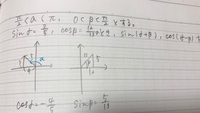 π/2 < α < π, 0 < β < π/2 とする。
sin α = 3/5, cos β = 12/13 のとき, sin(α+β), cos(α-β)
cos α = -4/5 sin β = 5/13